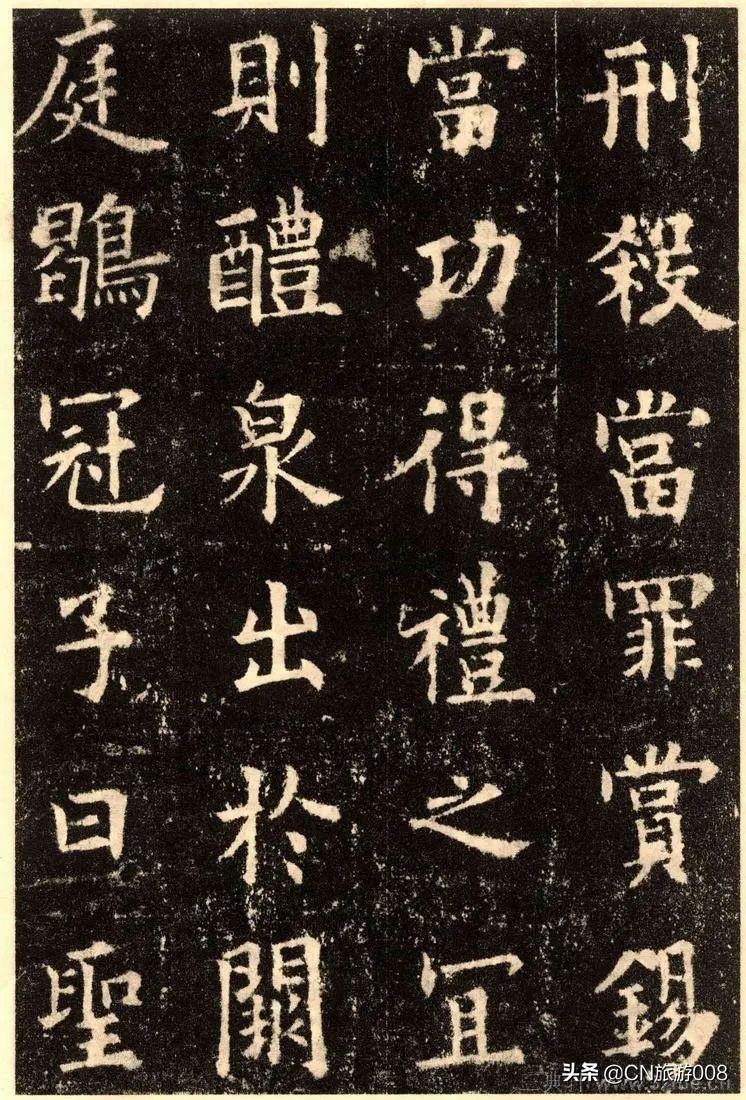 刑殺當罪賞錫
當功得禮之冝
則醴泉出於闕
庭鶡冠子曰聖
头条 @CN旅游008